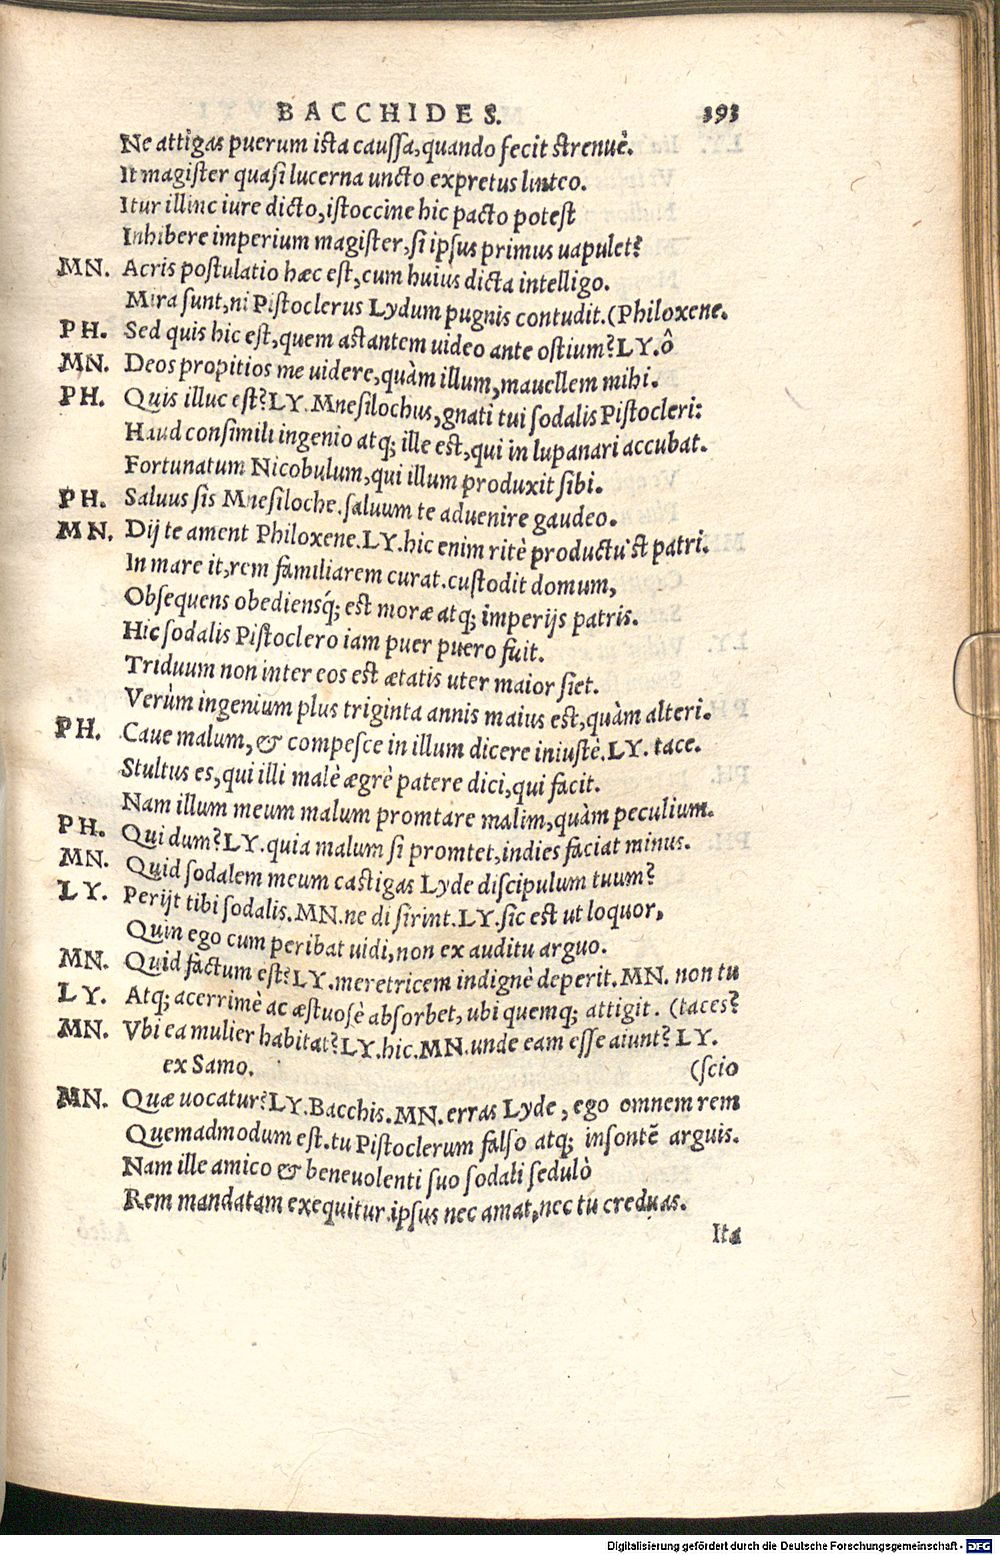 BACCHIDES. 393
Ne attigas puerum ista caussa, quando fecit strenuè.
It magister quasi lucerna uncto expretus linteo.
Itur illinc iure dicto, istoccine hic pacto potest
Inhibere imperium magister, si ipsus primus uapulet?
MN. Acris postulatio hæc est, cum huius dicta intelligo.
Mira sunt, ni Pistoclerus Lydum pugnis contudit. (Philoxene.
PH. Sed quis hic est, quem astantem uideo ante ostium? LY. ô
MN. Deos propitios me uidere, quàm illum, mauellem mihi.
PH. Quis illuc est? LY. Mnesilochus, gnati tui sodalis Pistocleri:
Haud consimili ingenio atq; ille est, qui in lupanari accubat.
Fortunatum Nicobulum, qui illum produxit sibi.
PH. Saluus sis Mnesiloche. saluum te aduenire gaudeo.
MN. Dij te ament Philoxene. LY. hic enim ritè productu'st patri.
In mare it, rem familiarem curat. custodit domum,
Obsequens obediensq́; est moræ atq; imperijs patris.
Hic sodalis Pistoclero iam puer puero fuit.
Triduum non inter eos est ætatis uter maior siet.
Verùm ingenium plus triginta annis maius est, quàm alteri.
PH. Caue malum, & compesce in illum dicere iniustè. LY. tace.
Stultus es, qui illi malè ægrè patere dici, qui facit.
Nam illum meum malum promtare malim, quàm peculium.
PH. Qui dum? LY. quia malum si promtet, indies faciat minus.
MN. Quid sodalem meum castigas Lyde discipulum tuum?
LY. Perijt tibi sodalis. MN. ne di sirint. LY. sic est ut loquor,
Quin ego cum peribat uidi, non ex auditu arguo.
MN. Quid factum est? LY. meretricem indignè deperit. MN. non tu
LY. Atq; acerrimè ac æstuosè absorbet, ubi quemq; attigit. (taces?
MN. Vbi ea mulier habitat? LY. hic. MN. unde eam esse aiunt? LY.
ex Samo. (scio
MN. Quæ uocatur? LY. Bacchis. MN. erras Lyde, ego omnem rem
Quemadmodum est. tu Pistoclerum falso atq; insontẽ arguis.
Nam ille amico & beneuolenti suo sodali sedulò
Rem mandatam exequitur. ipsus nec amat, nec tu creduas.
Ita
Digitalisierung gefördert durch die Deutsche Forschungsgemeinschaft - DFG